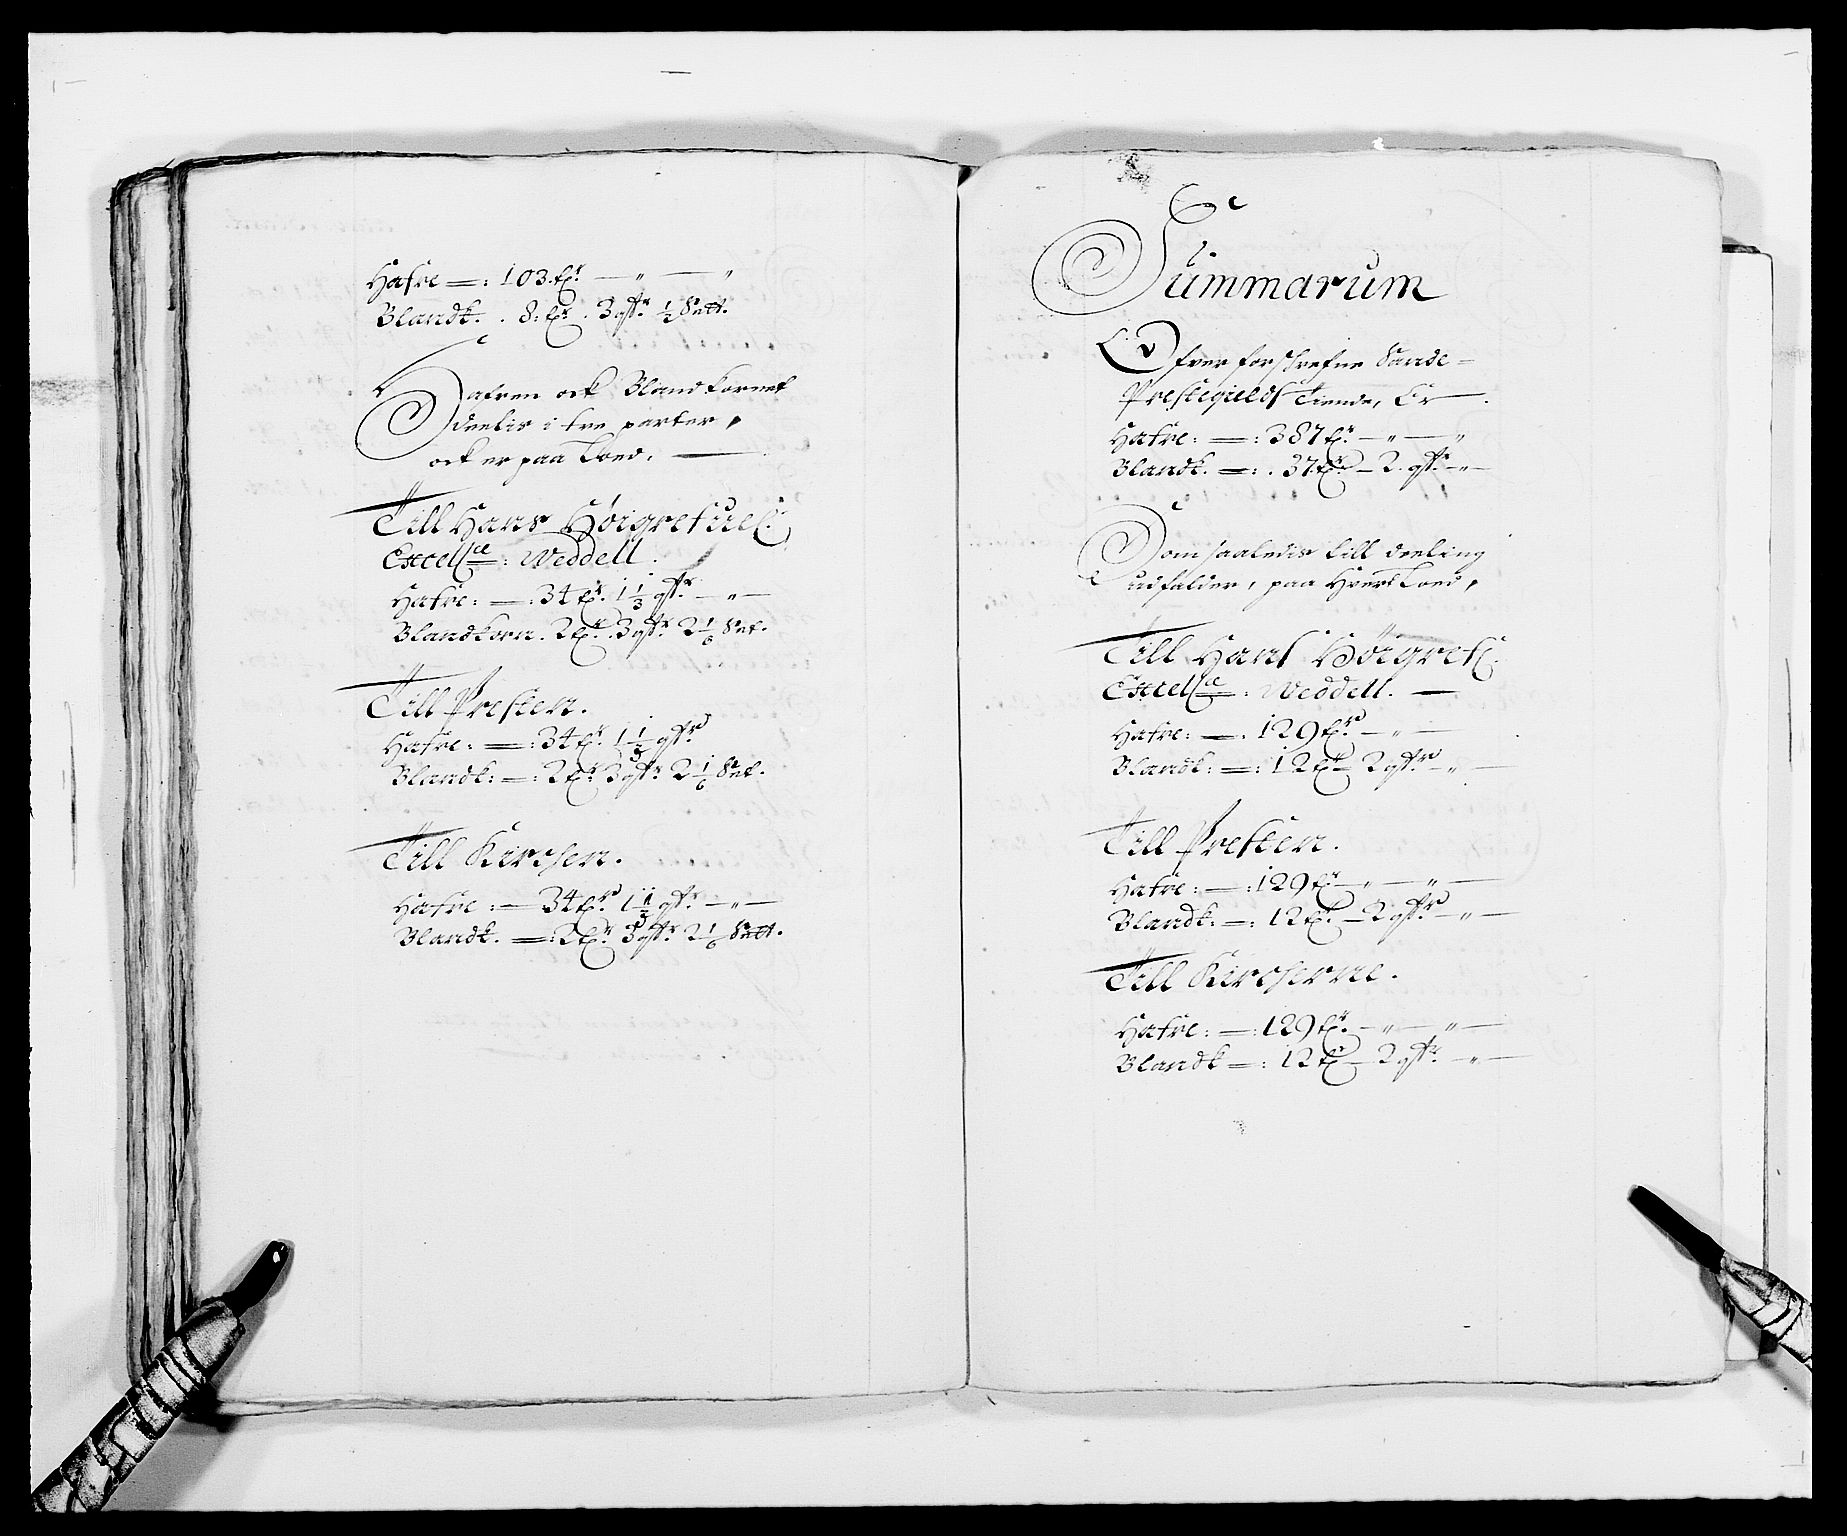 Hafre = : 103. tr. — „ — „
Blandk. . 8. tr. . 3 qtr. ½ Sett.
Hafren och Blandkornet
deelis i tre parter,
och er paa Loed. —
Till Hans Høigrefuel.
Excellce: Weddell.
Hafre: = : 34 tr. 1 1/3 qtr. — „ —
Blandkorn. 2 tr. 3 qtr. 2 1/6 Set.
Till Presten.
Hafre: = : 34 tr. 1 1/3 qtr
Blandk: = : 2 tr 3 qtr 2 1/6 Set.
Till Kirchen.
Hafre : — 34 tr. 1 1/3 qtr. — „ —
Blandk. = : 2 tr. 3 qtr. 2 1/6 Sett.
Summarum
Ofver forschrefne Sande –
Prestegields Tiende, Er — .
Hafre: = : 387 tr. — „ — „
Blandk. = : . 37 tr. — 2. qtr. — „ —
Som saaledis till deeling
udfalder, paa Hvert Loed,
Till Hans Høigrefl.
Excellce: Weddell. —
Hafre: = : 129 tr. — „ —
Blandk: = : 12 tr — 2 qtr — „ —
Till Presten.
Hafre: — : 129 tr — „ — „ —
Blandk: = : 12 tr. — 2 qtr — „ —
Till Kircherne.
Hafre: = : 129 tr. — „ — „ —
Blandk = : 12 tr — 2 qtr. — „ —